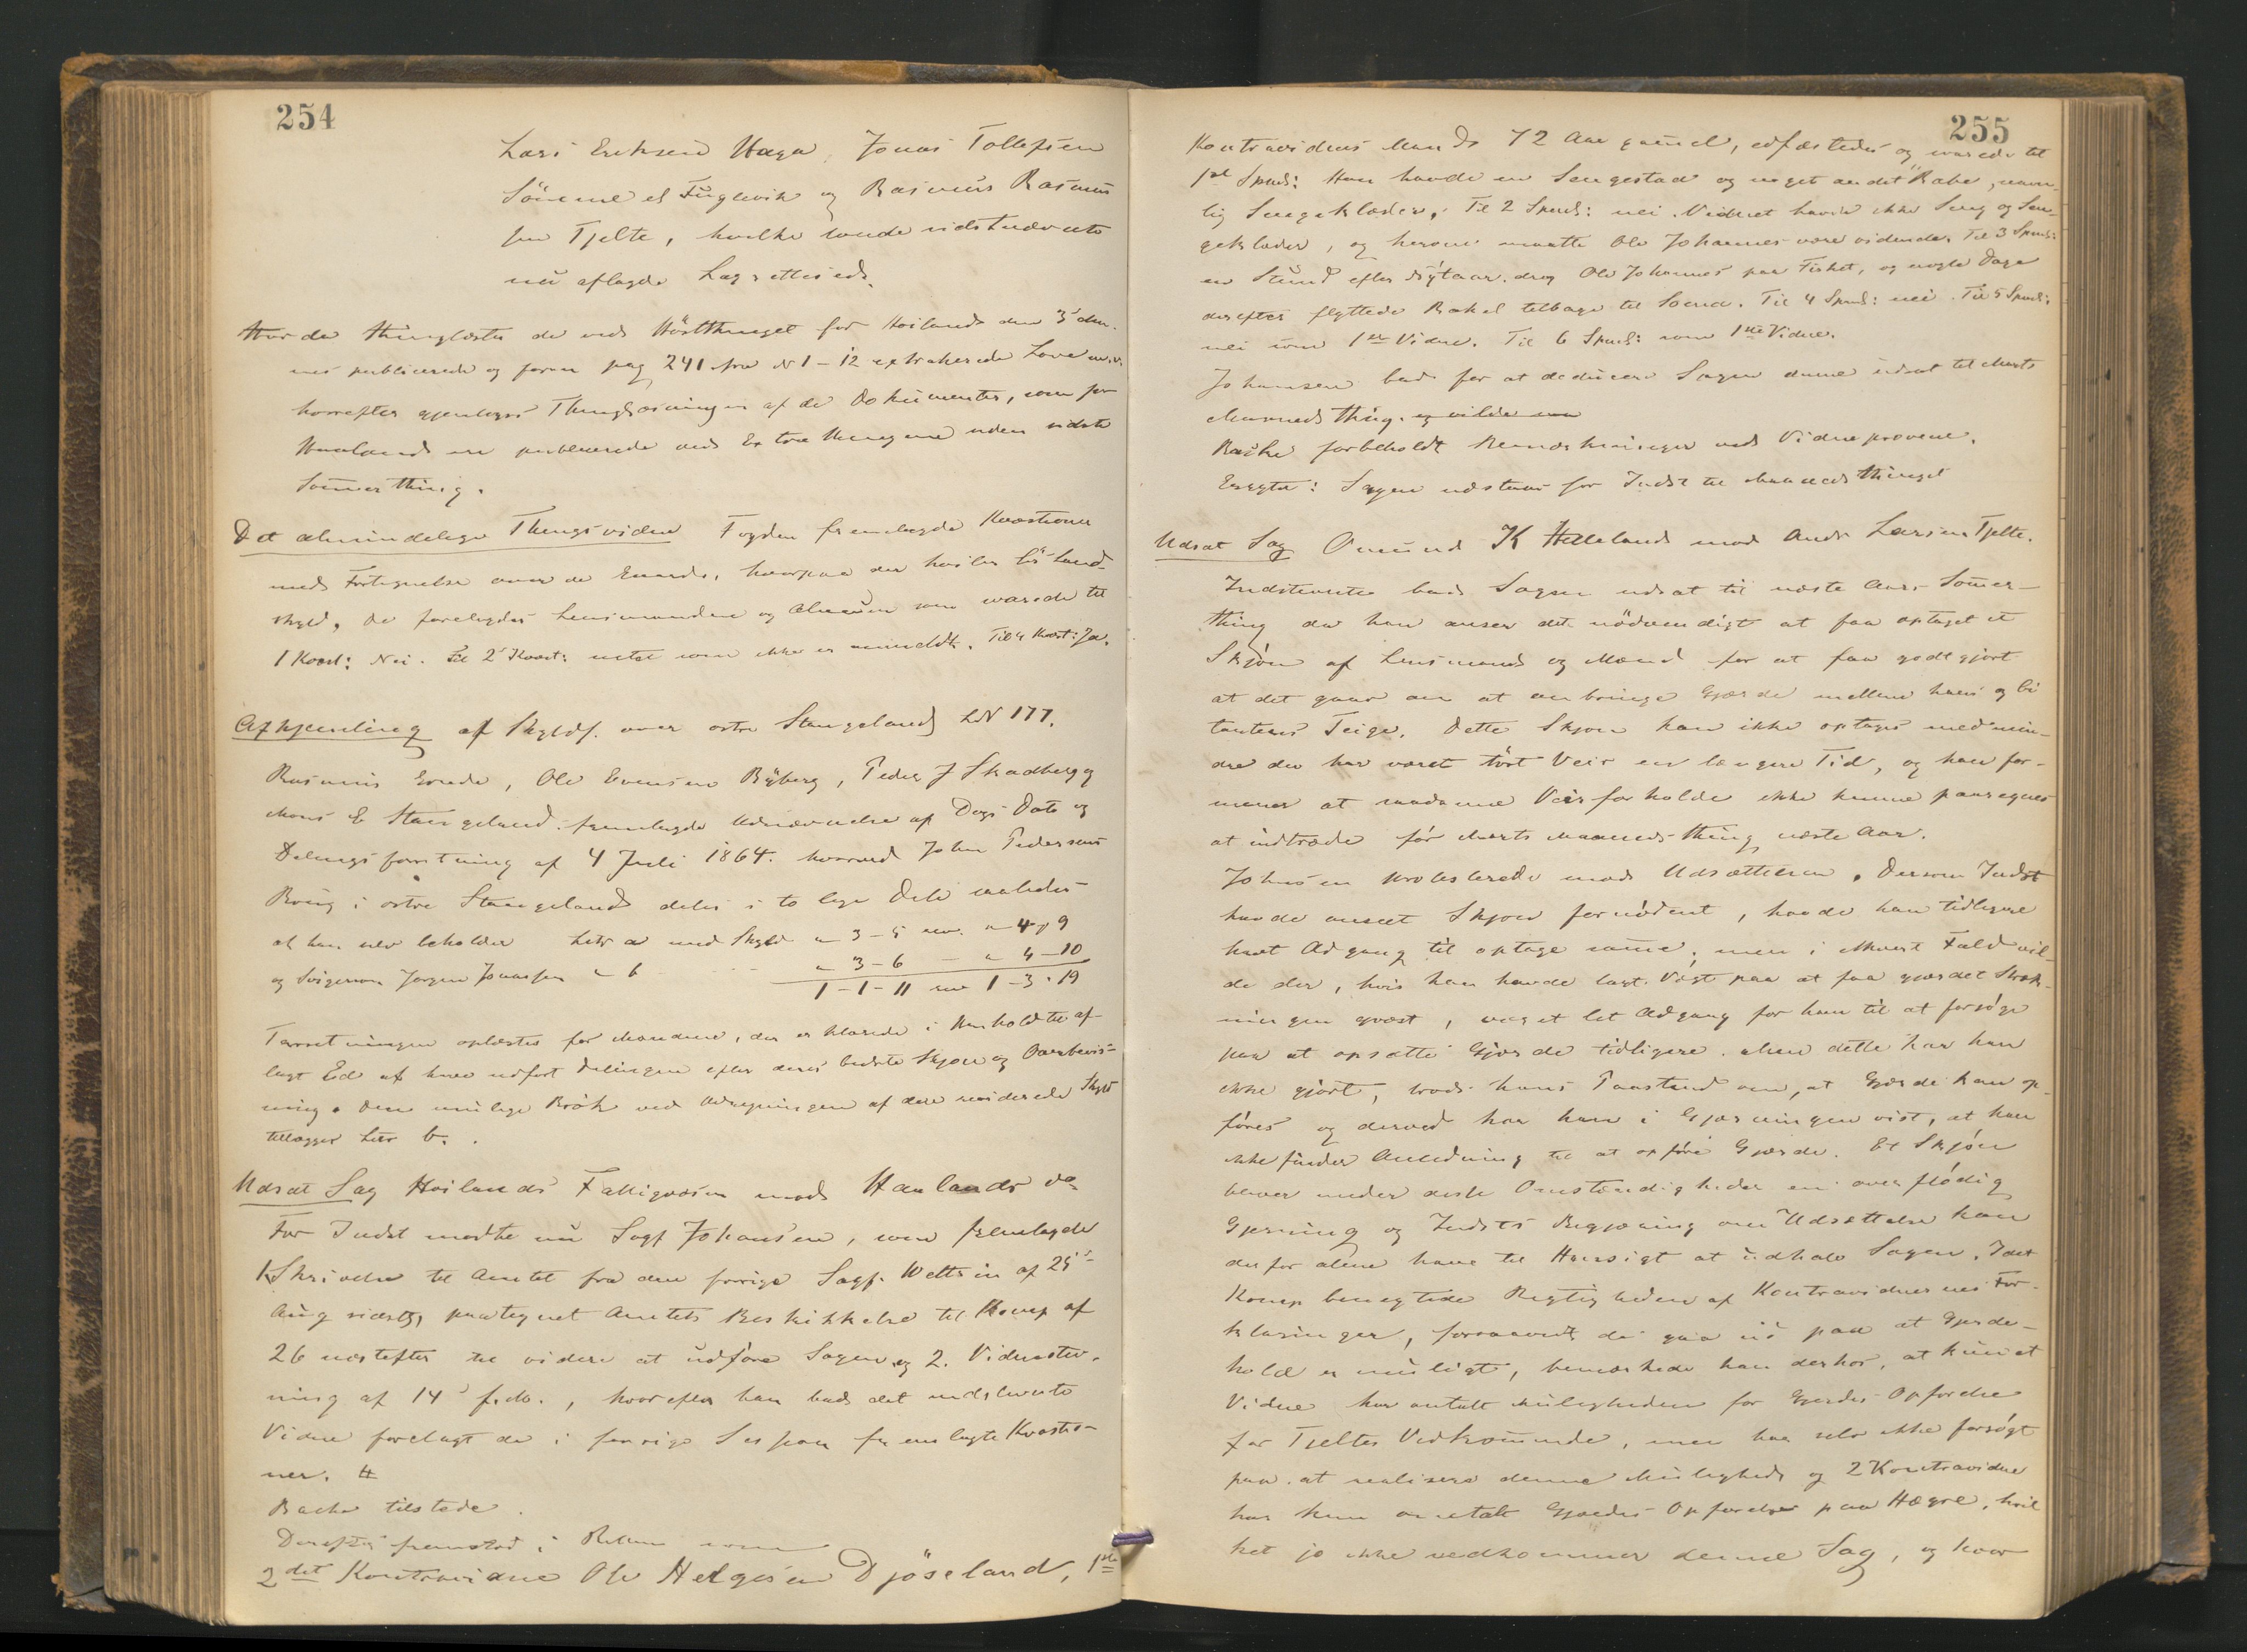 254
Lars Eriksen Haga, Jonas Tollefsen
Sömme el Fuglevik og Rasmus Rasmus
sen Tjelte, hvilke tvende sidstnævnte
nu aflagde Lagrettesed.
Hvorda thinglæstes de ved Höstthinget for Höilands den 3 den
nes publicerede og foran pag 241 fra N 1-12 extraherede Love m.v.
hvorefter gjentoges Thinglæsningen af de Dokumenter, som for
Haalands ere publicerede ved Extrathingene siden sidste
Sommerthing.
Det almindelige Thingsvidne Fogden fremlagde Kvæstioner
med Fortegnelse over de Gaarde, hvorpaa der hviler lös Land-
skyld, de forelagdes Lensmændene og Almuen som svarede til
1 Kvæst: Nei. Til 2 Kvæst: intet som ikke er anmeldt. Til 4 Kvæst: Ja.
Afhjemling af Skyldf. over östre Stangeland LN 177.
Rasmus Grude, Ole Evensen Byberg, Peder J Skadberg og
Mons E Stangeland fremlagde Udnævnelse af Dags Dato og
Delingsforretning af 4 Juli 1864. hvorved John Pedersens
Brug i östre Stangeland deles i to lige Dele saaledes
at han selv beholder Litr a med Skyld " 3-5 rev. " 4-9
og Svigersön Jörgen Jonassen " b " 3-6 - " 4-10
1-1-11 rev 1-3-19
Forretningen oplæstes for Mændene, der erklærede i Henhold til af-
lagt Ed at have udfört Delingen efter deres bedste Skjön og Overbevis-
ning. Den mulige Brök ved Udregningen af den reviderede Skyld
tillægges Litr b.
Udsat Sag Höilands Fattigvæsen mod Haalands do
For Indst mödte nu Sagf Johansen, som fremlagde
1 Skrivelse til Amtet fra den forrige Sagf. Weltzin af 25
Aug sidstl, paategnet Amtets Beskikkelse til Komp af
26 næstefter til videre at udföre Sagen og 2. Vidnestev-
ning af 14 f.M., hvorefter han bad det indstevnte
Vidne forelagt de i forrige Session fremlagte Kvæstio-
ner.
Bache tilstede.
Derefter fremstod i Retten som
2det Kontravidne Ole Helgesen Djöseland, 1ste
255
Kontravidnes Mand 72 Aar gammel, edfæstedes og svarede til
1st Spml: Han havde en Sengestad og noget andet Rabe, navn-
lig Sengeklæder. Til 2 Spml: nei. Vidnet havde ikke Seng og Sen-
geklæder, og herom maatte Ole Johannes være vidende. Til 3 Spml:
en Stund efter Nytaar drog Ole Johannes paa Fisket, og nogle Dage
derefter flyttede Rakel tilbage til Soma. Til 4 Spml: nei. Til 5 Spml:
nei som 1ste Vidne. Til 6 Spml: som 1ste Vidne.
Johansen bad for at deducere Sagen denne udsat til Marts
Maaneds thing. og vilde
Bache forbeholdt Bemærkninger ved Vidneprovene.
Eragtet: Sagen udstaar for Indst til Maanedsthinget
Udsat Sag Omund K Helleland mod Anders Larsen Tjelte.
Indstevnte bad Sagen udsat til næste Aars Sommer-
thing da han anser det nödvendigt at faa optaget et
Skjön af Lensmand og Mænd for at faa godtgjort
at det gaar an at anbringe Gjærde mellem hans og Ci
tantens Teige. Dette Skjön kan ikke optages medmin-
dre der har været tört Veir en længere Tid, og han for-
mener at saadanne Veirforholde ikke kunne paaregnes
at indtræde för Marts Maaneds-thing næste Aar.
Johnsen protesterede mod Udsættelsen. Dersom Indst
havde anseet Skjön fornödent, havde han tidligere
havt Adgang til optage samme; men i ethvert Fald vil-
de der, hvis han havde lagt Vægt paa at faa gjærdet Stræk-
ningen qvæst, været let Adgang for ham til at forsöge
paa at opsætte Gjærde tidligere. Men dette har han
ikke gjort, trods hans Paastand om, at Gjærde kan op-
föres og derved har han i Gjerningen vist, at han
ikke finder Anledning til at opföre Gjærde. Et Skjön
bliver under disse Omstændigheder en overflödig
Gjerning og Indsts Begjæring om Udsættelse kan
derfor alene have til Hensigt at udhale Sagen. Idet
Komp benegtede Rigtigheden af Kontravidnernes For-
klaringer, forsaavidt de gaa ud paa at Gjerde-
hold er muligt, bemærkede han derhos, at kun et
Vidne har antalt Muligheden for Gjerdes Opförelse
for Tjeltes Vedkommende, men har selv ikke forsögt
paa at realisere denne Mulighed og 2 Kontravidne
har kun omtalt Gjærdes Opförelse paa Hægre, hvil
ket jo ikke vedkommer denne Sag, og hvor